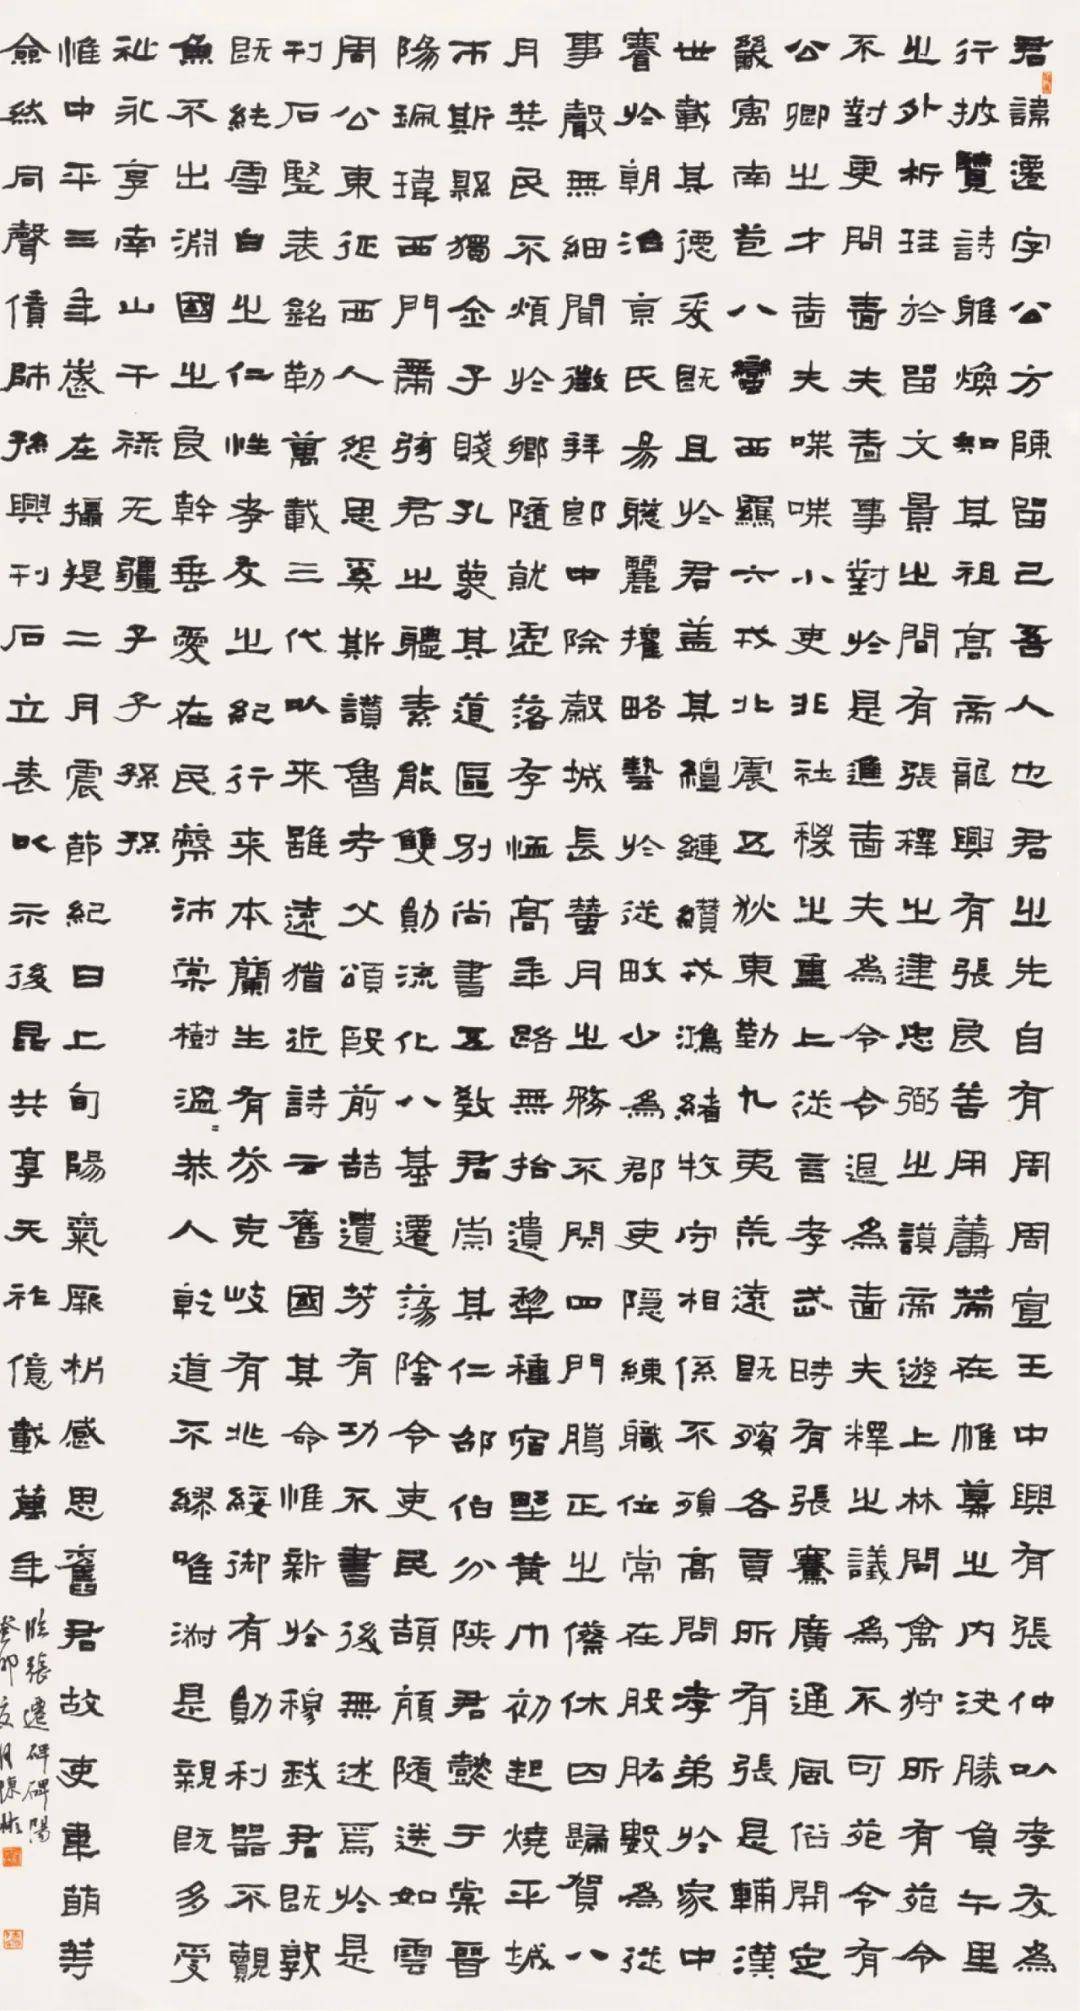 君諱遷字公方陳留己吾人也君之先自有周周宣王中興有張仲以孝友為
行披覽詩雅煥知其祖高帝龍興有張良善用籌策在帷幕之內決勝負千里
之外析珪於留文景之間有張釋之建忠弼之謨帝遊上林問禽狩所有苑令
不對更問嗇夫嗇夫事對於是進嗇夫為令令退為嗇夫釋之議為不可苑令有
公卿之才嗇夫喋喋小吏非社稷之重上從言孝武時有張騫廣通風俗開定
畿寓南苞八蠻西羈六戎北震五狄東勤九夷荒遠既殯各貢所有張是輔漢
世載其德爰既且於君蓋其繵縺纘戎鴻緒牧守相係不殞高問孝弟於家中
謇於朝治京氏易聰麗權略藝於從畋少為郡吏隱練職位常在股肱數為從
事聲無細聞徵拜郎中除穀城長蠶月之務不閉四門臘正之僚休囚歸賀八
月筭民不煩於鄉隨就虛落存恤高年路無拾遺犁種宿野黃巾初起燒平城
市斯縣獨全子賤孔蔑其道區別尚書五教君崇其仁邵伯分陝君懿于棠晉
陽珮瑋西門帶弦君之體素能雙勛流化八基遷蕩陰令吏民頡頏隨送如雲
周公東征西人怨思奚斯讚魯考父頌殷前喆遺芳有功不書後無述焉於是
刊石豎表銘勒萬載三代以來雖遠猶近詩云舊國其命惟新於穆我君既敦
既純雪白之仁性孝友之紀行來本蘭生有芬克岐有兆綏御有勛利器不覿
魚不出淵國之良幹垂愛在民蔽沛棠樹溫=恭人乾道不繆唯淑是親既多受
祉永享南山干祿无疆子子孫孫
惟中平三年歲在攝提二月震節紀日上旬陽氣厥析感思舊君故吏韋萌等
僉然同聲賃師孫興刊石立表以示後昆共享天祚億載萬年
臨張遷碑碑陽
癸卯夏月陳彬